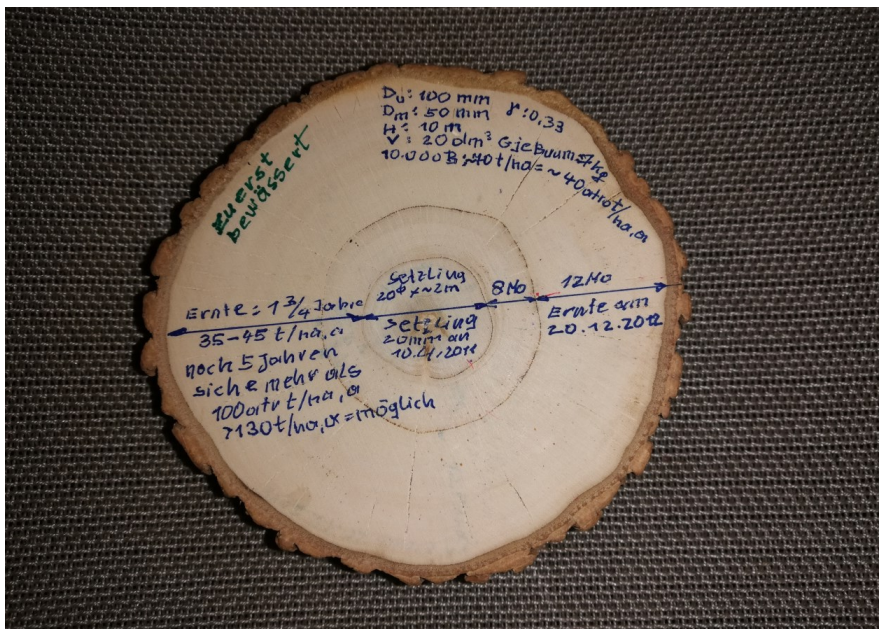 Du: 100 mm
Dm: 50 mm γ: 0,33
H: 10 m
V: 20 dm³ G je Baum = 7kg
10.000 B; 70 t/ha = ~40 atrot/ha,a
zuerst
bewässert
Setzling
20⌀ x ~2m
8 Mo
12 Mo
Ernte = 1 3/4 Jahre
35-45 t/ha,a
Setzling
20mm an
2011
Ernte am
20.12.2012
noch 5 Jahren
siche mehr als
100 atrt/ha,a
>130 t/ha,a = möglich